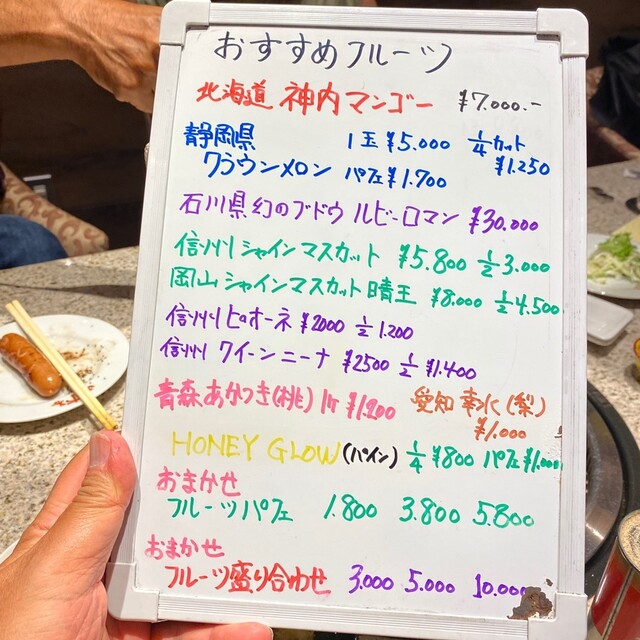 おすすめフルーツ
北海道 神内マンゴー ¥7.000.-
静岡県 1玉¥5.000 1/4カット ¥1.250
クラウンメロン パフェ¥1.700
石川県幻のブドウ ルビーロマン ¥30.000
信州シャインマスカット ¥5.800 1/2 3.000
岡山シャインマスカット晴王 ¥8.000 1/2 4.500
信州ピオーネ ¥2000 1/2 1.200
信州 クイーンニーナ ¥2500 1/2 ¥1.400
青森あかつき(桃) 1ケ ¥1.200 愛知 幸水(梨) ¥1.000
HONEY GLOW(パイン) 1/4 ¥800 パフェ¥1.000
おまかせ
フルーツパフェ 1.800 3.800 5.800
おまかせ
フルーツ盛り合わせ 3.000 5.000 10.000